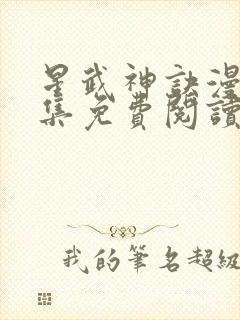 星武神訣漫
集免費閱讀
我的筆名超級